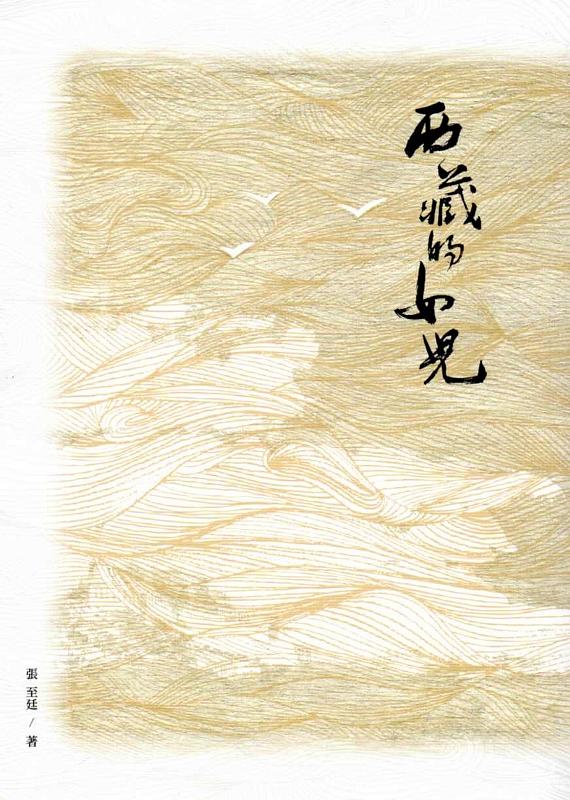 西藏的女兒
張至廷／著